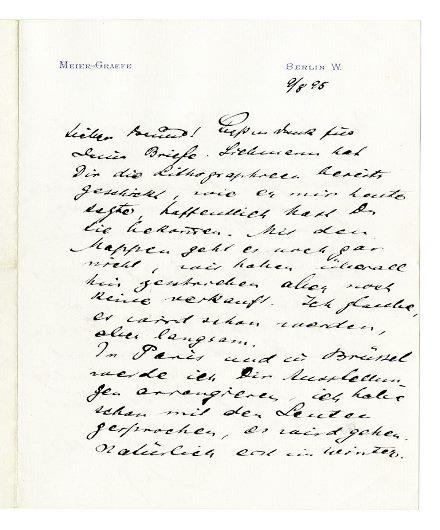 MEIER-GRAEFE BERLIN W.
9/8 95
Lieber Freund! Dank für
Deine Briefe. Liebmann hat
Dir die Lithographieen bereits
geschickt, wie er mir heute
sagte, hoffentlich hast Du
sie bekommen. Mit den
Mappen geht es noch gar
nicht, wir haben überall
hin geschrieben aber noch
keine verkauft. Ich glaube,
es wird schon werden,
aber langsam.
In Paris und in Brüssel
werde ich Dir Ausstellun-
gen arrangieren, ich habe
schon mit den Leuten
gesprochen, es wird gehen.
Natürlich erst im Winter.